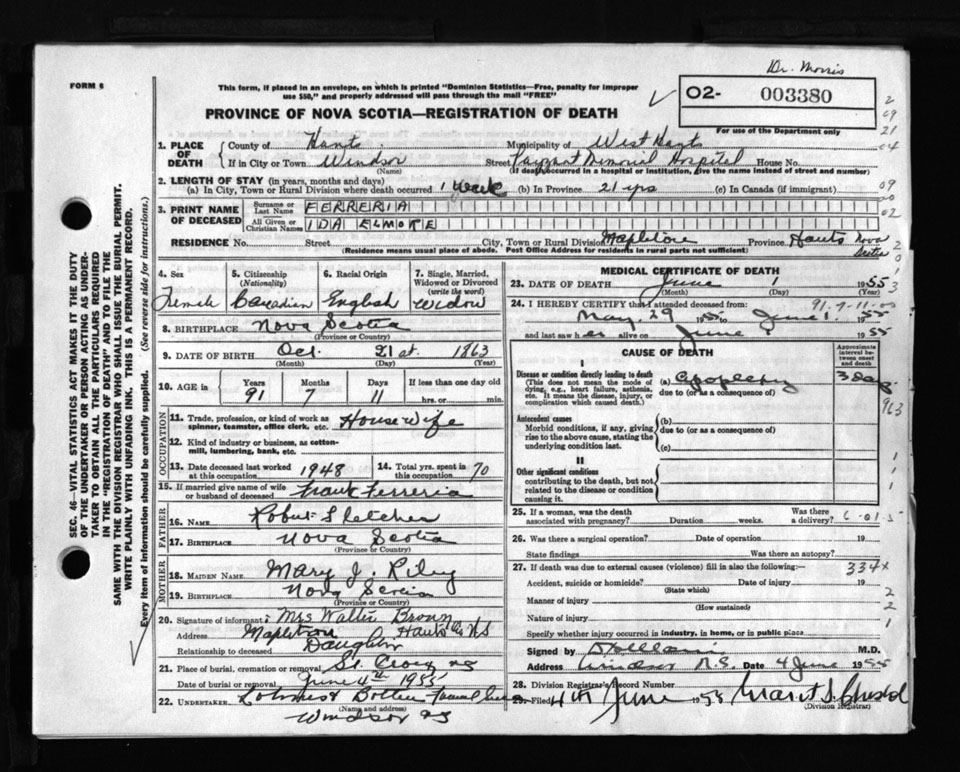 Dr. Morris
FORM 6
This form, if placed in an envelope, on which is printed "Dominion Statistics—Free, penalty for improper
use $50," and properly addressed will pass through the mail "FREE"
02- 003380
PROVINCE OF NOVA SCOTIA—REGISTRATION OF DEATH
For use of the Department only
1. PLACE OF DEATH
County of Hants Municipality of West Hants
If in City or Town Windsor Street Payzant Memorial Hospital House No.
(Name) (If death occurred in a hospital or institution, give the name instead of street and number)
2. LENGTH OF STAY (in years, months and days)
(a) In City, Town or Rural Division where death occurred 1 week (b) In Province 21 yrs (c) In Canada (if immigrant)
3. PRINT NAME OF DECEASED
Surname or Last Name FERRERIA
All Given or Christian Names IDA ELMORE
RESIDENCE No. Street City, Town or Rural Division Mapleton Province Hants Nova Scotia
(Residence means usual place of abode. Post Office Address for residents in rural parts not sufficient)
SEC. 46—VITAL STATISTICS ACT MAKES IT THE DUTY
OF THE UNDERTAKER OR PERSON ACTING AS UNDER-
TAKER TO OBTAIN ALL THE PARTICULARS REQUIRED
IN THE "REGISTRATION OF DEATH" AND TO FILE THE
SAME WITH THE DIVISION REGISTRAR WHO SHALL ISSUE THE BURIAL PERMIT.
WRITE PLAINLY WITH UNFADING INK. THIS IS A PERMANENT RECORD.
Every item of information should be carefully supplied. (See reverse side for instructions.)
4. Sex 5. Citizenship (Nationality) 6. Racial Origin 7. Single, Married, Widowed or Divorced (write the word)
Female Canadian English Widow
8. BIRTHPLACE Nova Scotia
(Province or Country)
9. DATE OF BIRTH Oct. 21st. 1863
(Month) (Day) (Year)
10. AGE in Years Months Days If less than one day old
91 7 11 hrs. or min.
OCCUPATION
11. Trade, profession, or kind of work as
spinner, teamster, office clerk, etc. House Wife
12. Kind of industry or business, as cotton-
mill, lumbering, bank, etc.
13. Date deceased last worked
at this occupation 1948
14. Total yrs. spent in
this occupation 70
15. If married give name of wife
or husband of deceased Frank Ferreria
FATHER
16. NAME Robert Fletcher
17. BIRTHPLACE Nova Scotia
(Province or Country)
MOTHER
18. MAIDEN NAME Mary J. Riley
19. BIRTHPLACE Nova Scotia
(Province or Country)
20. Signature of informant: Mrs Walter Brown
Address Mapleton Hants Co NS
Relationship to deceased Daughter
21. Place of burial, cremation or removal St. Croix NS
Date of burial or removal June 4th 1955
22. UNDERTAKER
(Name and address)
Windsor NS
MEDICAL CERTIFICATE OF DEATH
23. DATE OF DEATH June 1 1955
(Month) (Day) (Year)
24. I HEREBY CERTIFY that I attended deceased from:
91-7-11-00
May 29 1955 to June 1. 1955
and last saw her alive on June 1955
CAUSE OF DEATH
Approximate interval between onset and death
I
Disease or condition directly leading to death
(This does not mean the mode of
dying, e.g., heart failure, asthenia,
etc. It means the disease, injury, or
complication which caused death.)
(a) Apoplexy 3 days
due to (or as a consequence of)
Antecedent causes
Morbid conditions, if any, giving
rise to the above cause, stating the
underlying condition last.
(b)
due to (or as a consequence of)
(c)
II
Other significant conditions
contributing to the death, but not
related to the disease or condition
causing it.
25. If a woman, was the death
associated with pregnancy? Duration weeks. Was there a delivery?
26. Was there a surgical operation? Date of operation 19
State findings Was there an autopsy?
27. If death was due to external causes (violence) fill in also the following: 334x
Accident, suicide or homicide? Date of injury 19
(State which)
Manner of injury
(How sustained)
Nature of injury
Specify whether injury occurred in industry, in home, or in public place
Signed by M.D.
Address Windsor N.S. Date 4 June 1955
28. Division Registrar's Record Number
29. Filed 4th June 1955
(Division Registrar)